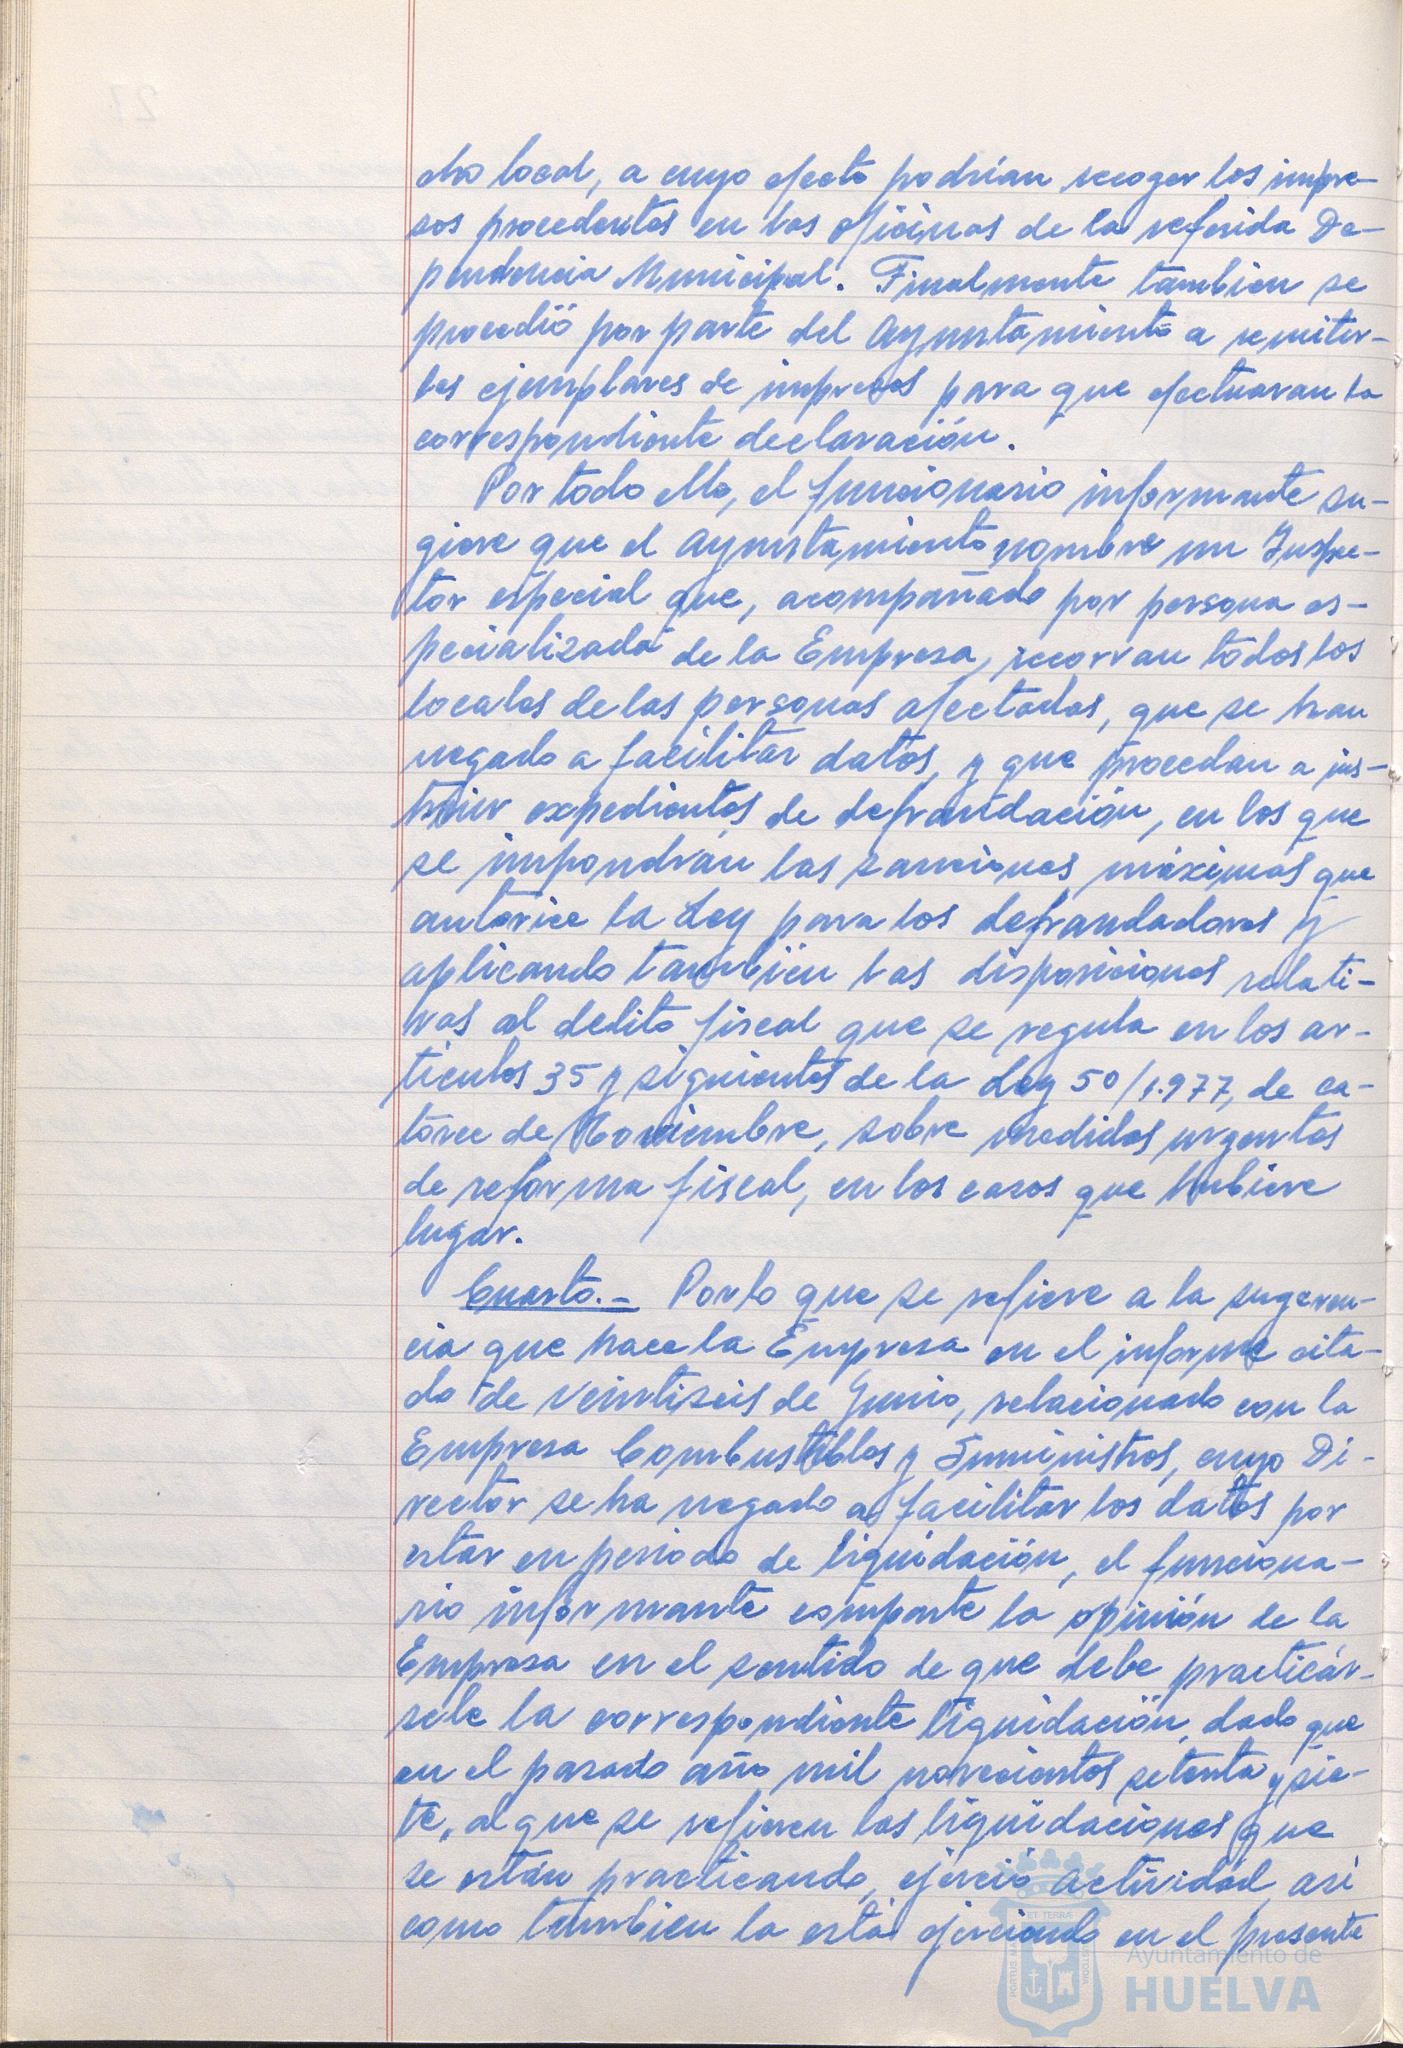 cho local, a cuyo efecto podrían recoger los impre-
sos procedentes en las oficinas de la referida De-
pendencia Municipal. Finalmente tambien se
procedió por parte del Ayuntamiento a remitir-
les ejemplares de impresos para que efectuaran la
correspondiente declaración.
Por todo ello, el funcionario informante su-
giere que el Ayuntamiento nombre un Inspec-
tor especial que, acompañado por persona es-
pecializada de la Empresa, recorran todos los
locales de las personas afectadas, que se han
negado a facilitar datos, y que procedan a ins-
truir expedientes de defraudación, en los que
se impondrán las sanciones máximas que
autorice la Ley para los defraudadores y
aplicando también las disposiciones relati-
vas al delito fiscal que se regula en los ar-
tículos 35 y siguientes de la Ley 50/1.977, de ca-
torce de Noviembre, sobre medidas urgentes
de reforma fiscal, en los casos que hubiere
lugar.
Cuarto.- Por lo que se refiere a la sugeren-
cia que hace la Empresa en el informe cita-
do de veintiseis de Junio, relacionado con la
Empresa Combustibles y Suministros, cuyo Di-
rector se ha negado a facilitar los datos por
estar en periodo de liquidación, el funciona-
rio informante comparte la opinión de la
Empresa en el sentido de que debe practicár-
sele la correspondiente liquidación, dado que
en el pasado año mil novecientos setenta y sie-
te, al que se refieren las liquidaciones que
se están practicando, ejerció actividad, así
como tambien la está ejerciendo en el presente
Ayuntamiento de
HUELVA